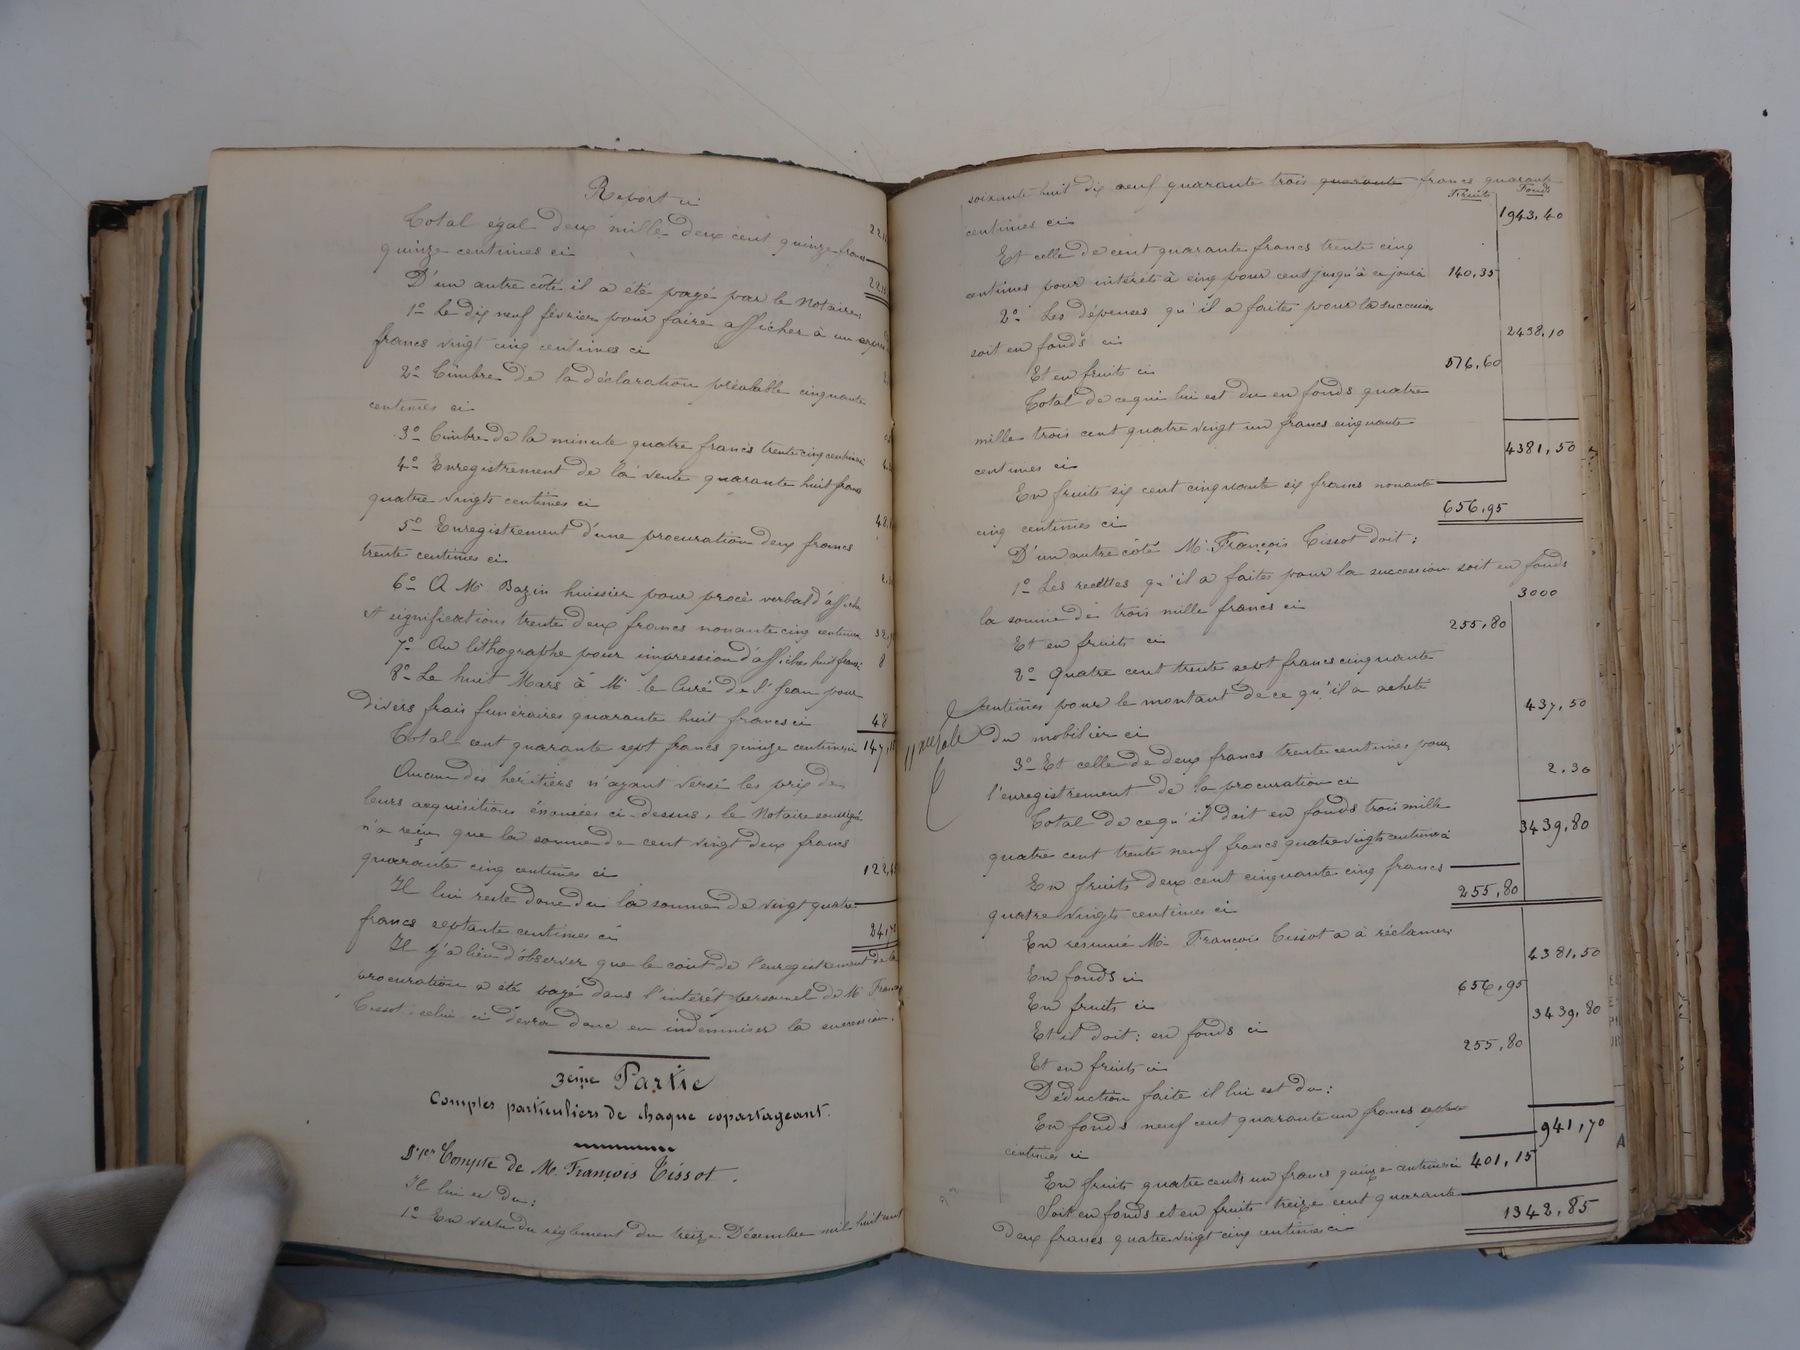 Report ci
Total égal deux mille deux cent quinze francs 221
quinze centimes ci 221
D'un autre côté il a été payé par le Notaire:
1º Le dix neuf février pour faire afficher à un
francs vingt cinq centimes ci
2º Timbre de la déclaration préalable cinquante
centimes ci
3º Timbre de la minute quatre francs trente cinq centimes
4º Enregistrement de la vente quarante huit francs
quatre vingts centimes ci 48,
5º Enregistrement d'une procuration deux francs
trente centimes ci
6º A Mr Bazin huissier pour procès verbal d'affiches
et significations trente deux francs nonante cinq centimes 32,9
7º Au lithographe pour impression d'affiches huit francs 8
8º Le huit Mars à Mr le Curé de St Jean pour
divers frais funéraires quarante huit francs ci 48
Total cent quarante sept francs quinze centimes ci 147,15
Aucun des héritiers n'ayant versé les prix de
leurs acquisitions énoncées ci-dessus, le Notaire soussigné
n'a reçu que la somme de cent vingt deux francs
quarante cinq centimes ci 122,45
Il lui reste donc du la somme de vingt quatre
francs septante centimes ci 24,70
Il y a lieu d'observer que le coût de l'enregistrement de la
procuration a été payé dans l'intérêt personnel de Mr François
Tissot; celui ci devra donc en indemniser la succession.
3ème Partie
Comptes particuliers de chaque copartageant.
Compte de M. François Tissot.
Il lui est du:
1º En vertu du règlement du treize Décembre mil huit cent
soixante huit dix neuf quarante trois quarante francs quarante
Fruits Fonds
centimes ci 1943,40
Et celle de cent quarante francs trente cinq
centimes pour intérêts à cinq pour cent jusqu'à ce jour ci 140,35
2º Les dépenses qu'il a faites pour la succession
soit en fonds ci 2438,10
Et en fruits ci 516,60
Total de ce qui lui est du en fonds quatre
mille trois cent quatre vingt un francs cinquante
centimes ci 4381,50
En fruits six cent cinquante six francs nonante
cinq centimes ci 656,95
D'un autre côté Mr François Tissot doit:
1º Les recettes qu'il a faites pour la succession soit en fonds
la somme de trois mille francs ci 3000
Et en fruits ci 255,80
2º Quatre cent trente sept francs cinquante
centimes pour le montant de ce qu'il a acheté
du mobilier ci 437,50
3º Et celle de deux francs trente centimes pour
l'enregistrement de la procuration ci 2,30
Total de ce qu'il doit en fonds trois mille
quatre cent trente neuf francs quatre vingts centimes ci 3439,80
En fruits deux cent cinquante cinq francs
quatre vingts centimes ci 255,80
En resumé Mr François Tissot a à réclamer:
En fonds ci 4381,50
En fruits ci 656,95
Et il doit: en fonds ci 3439,80
Et en fruits ci 255,80
Déduction faite il lui est du:
En fonds neuf cent quarante un francs septante
centimes ci 941,70
En fruits quatre cents un francs quinze centimes ci 401,15
Soit en fonds et en fruits treize cent quarante
deux francs quatre vingt cinq centimes ci 1342,85